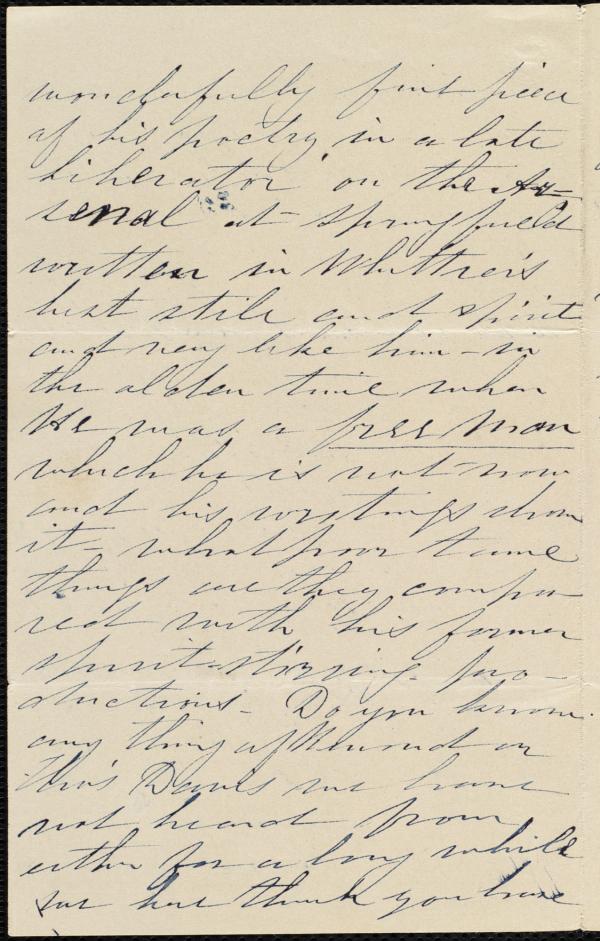 wonderfully fine piece
of his poetry in a late
Liberator on the Ar=
senal at Springfield
written in Whittier's
best stile and spirit
and very like him - in
the olden time when
He was a free man
which he is not now
and his writings show
it - what poor tame
things are they compa-
red with his former
spirit-stirring pro-
ductions - Do you know
any thing of or
Tho's Davis we have
not heard from
either for a long while
we here think you have